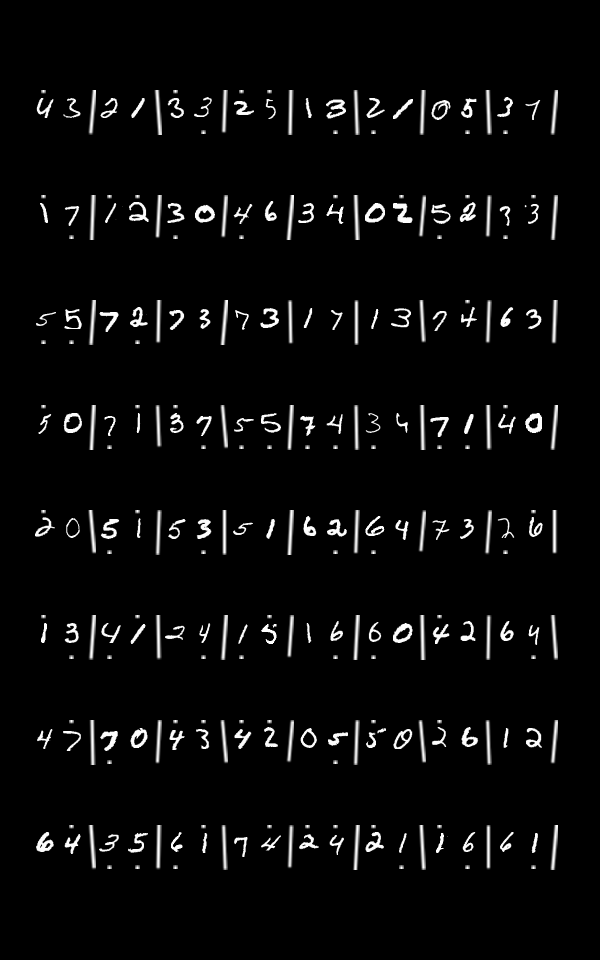 4 3 | 2 1 | 3 3 | 2 5 | 1 3 | 2 1 | 0 5 | 3 7 |
1 7 | 1 2 | 3 0 | 4 6 | 3 4 | 0 2 | 5 2 | 3 3 |
5 5 | 7 2 | 7 3 | 7 3 | 1 7 | 1 3 | 7 4 | 6 3 |
5 0 | 7 1 | 3 7 | 5 5 | 7 4 | 3 4 | 7 1 | 4 0 |
2 0 | 5 1 | 5 3 | 5 1 | 6 2 | 6 4 | 7 3 | 2 6 |
1 3 | 4 1 | 2 4 | 1 5 | 1 6 | 6 0 | 4 2 | 6 4 |
4 7 | 7 0 | 4 3 | 4 2 | 0 5 | 5 0 | 2 6 | 1 2 |
6 4 | 3 5 | 6 1 | 7 4 | 2 4 | 2 1 | 1 6 | 6 1 |